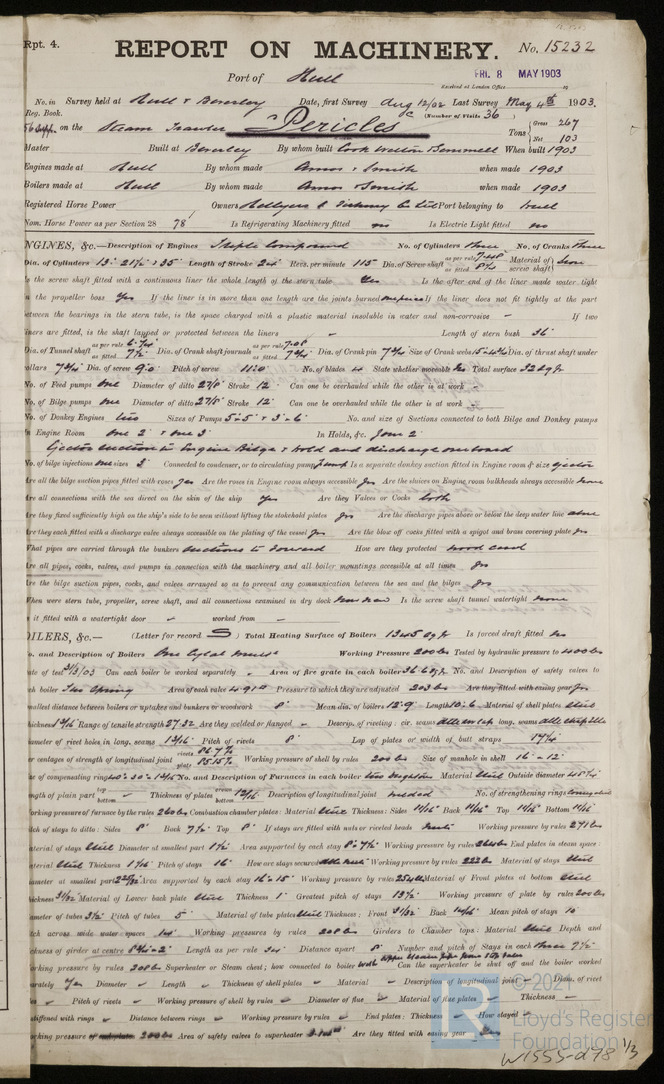 Rpt. 4.
REPORT ON MACHINERY. No. 15232
Port of Hull
FRI. 8 MAY 1903
Received at London Office
No. in Survey held at Hull & Beverley Date, first Survey Aug 12/02 Last Survey May 4th 1903.
Reg. Book. (Number of Visits 36)
on the Steam Trawler Pericles Tons Gross 267 Net 103
Master Built at Beverley By whom built Cook Welton Gemmell When built 1903
Engines made at Hull By whom made Amos & Smith when made 1903
Boilers made at Hull By whom made Amos & Smith when made 1903
Registered Horse Power Owners Hellyers S Fishing Co Ltd Port belonging to Hull
Nom. Horse Power as per Section 28 78 Is Refrigerating Machinery fitted no Is Electric Light fitted no
NGINES, &c.—Description of Engines Triple Compound No. of Cylinders Three No. of Cranks Three
Dia. of Cylinders 13" 21½ & 35" Length of Stroke 24" Revs. per minute 115 Dia. of Screw shaft as per rule 7.48 as fitted 8¼ Material of screw shaft Iron
Is the screw shaft fitted with a continuous liner the whole length of the stern tube Yes Is the after end of the liner made water tight
in the propeller boss Yes If the liner is in more than one length are the joints burned If the liner does not fit tightly at the part
between the bearings in the stern tube, is the space charged with a plastic material insoluble in water and non-corrosive - If two
liners are fitted, is the shaft lapped or protected between the liners - Length of stern bush 36"
Dia. of Tunnel shaft as per rule 6.74 as fitted 7½ Dia. of Crank shaft journals as per rule 7.08 as fitted 7¾ Dia. of Crank pin 7¾ Size of Crank webs 15 x 4¾ Dia. of thrust shaft under
collars 7¾ Dia. of screw 9.0 Pitch of screw 11.0 No. of blades 4 State whether moveable Total surface 32 sq ft
No. of Feed pumps One Diameter of ditto 2⅞ Stroke 12" Can one be overhauled while the other is at work -
No. of Bilge pumps One Diameter of ditto 2⅞ Stroke 12" Can one be overhauled while the other is at work -
No. of Donkey Engines two Sizes of Pumps No. and size of Suctions connected to both Bilge and Donkey pumps
In Engine Room One 2" & One 3" In Holds, &c. Four 2"
Ejector suction to Engine Bilge & hold and discharge overboard
No. of bilge injections one sizes 3" Connected to condenser, or to circulating pump pump Is a separate donkey suction fitted in Engine room & size ejector
Are all the bilge suction pipes fitted with roses Yes Are the roses in Engine room always accessible Yes Are the sluices on Engine room bulkheads always accessible none
Are all connections with the sea direct on the skin of the ship Yes Are they Valves or Cocks both
Are they fixed sufficiently high on the ship's side to be seen without lifting the stokehold plates Yes Are the discharge pipes above or below the deep water line above
Are they each fitted with a discharge valve always accessible on the plating of the vessel Yes Are the blow off cocks fitted with a spigot and brass covering plate Yes
What pipes are carried through the bunkers Suctions to forward How are they protected wood cased
Are all pipes, cocks, valves, and pumps in connection with the machinery and all boiler mountings accessible at all times Yes
Are the bilge suction pipes, cocks, and valves arranged so as to prevent any communication between the sea and the bilges Yes
When were stern tube, propeller, screw shaft, and all connections examined in dry dock Is the screw shaft tunnel watertight none
is it fitted with a watertight door - worked from -
OILERS, &c.— (Letter for record S) Total Heating Surface of Boilers 1345 sq ft Is forced draft fitted no
No. and Description of Boilers One Cylcl Multi Working Pressure 200 lbs Tested by hydraulic pressure to 400 lbs
Date of test 3/3/03 Can each boiler be worked separately - Area of fire grate in each boiler 36.6 sq ft No. and Description of safety valves to
each boiler Two Spring Area of each valve 4.91 Pressure to which they are adjusted 203 lbs Are they fitted with easing gear Yes
Smallest distance between boilers or uptakes and bunkers or woodwork 8" Mean dia. of boilers 12.9 Length 10.6 Material of shell plates Steel
Thickness Range of tensile strength 27-32 Are they welded or flanged - Descrip. of riveting: cir. seams long. seams
Diameter of rivet holes in long. seams 1 3/16 Pitch of rivets 8" Lap of plates or width of butt straps
Per centages of strength of longitudinal joint rivets plate 85.15% Working pressure of shell by rules 200 lbs Size of manhole in shell 16" x 12"
Size of compensating ring No. and Description of Furnaces in each boiler two Material Steel Outside diameter
Length of plain part top bottom - Thickness of plates crown bottom Description of longitudinal joint welded No. of strengthening rings
Working pressure of furnace by the rules Combustion chamber plates: Material Steel Thickness: Sides 11/16 Back 11/16 Top 11/16 Bottom 11/16
Pitch of stays to ditto: Sides 8" Back 7½ Top 8" If stays are fitted with nuts or riveted heads nuts Working pressure by rules
Material of stays Steel Diameter at smallest part 1½ Area supported by each stay 8 x 7½ Working pressure by rules End plates in steam space:
Material Steel Thickness Pitch of stays 16" How are stays secured Working pressure by rules Material of stays Steel
Diameter at smallest part Area supported by each stay 16 x 15" Working pressure by rules Material of Front plates at bottom Steel
Thickness 31/32 Material of Lower back plate Steel Thickness 1" Greatest pitch of stays 13½ Working pressure of plate by rules 200 lbs
Diameter of tubes 3½ Pitch of tubes 5" Material of tube plates Steel Thickness: Front 31/32 Back Mean pitch of stays 10"
Pitch across wide water spaces 14" Working pressures by rules 208 lbs Girders to Chamber tops: Material Steel Depth and
thickness of girder at centre Length as per rule Distance apart 8" Number and pitch of Stays in each three 7½
Working pressure by rules 208 lbs Superheater or Steam chest; how connected to boiler Can the superheater be shut off and the boiler worked
separately Yes Diameter - Length - Thickness of shell plates - Material - Description of longitudinal joint - Diam. of rivet
holes - Pitch of rivets - Working pressure of shell by rules - Diameter of flue - Material of flue plates - Thickness -
If stiffened with rings - Distance between rings - Working pressure by rules - End plates: Thickness - How stayed -
Working pressure of 200 lbs Area of safety valves to superheater Are they fitted with easing gear
© 2021
Lloyd's Register
Foundation
W1555-0178 1/3